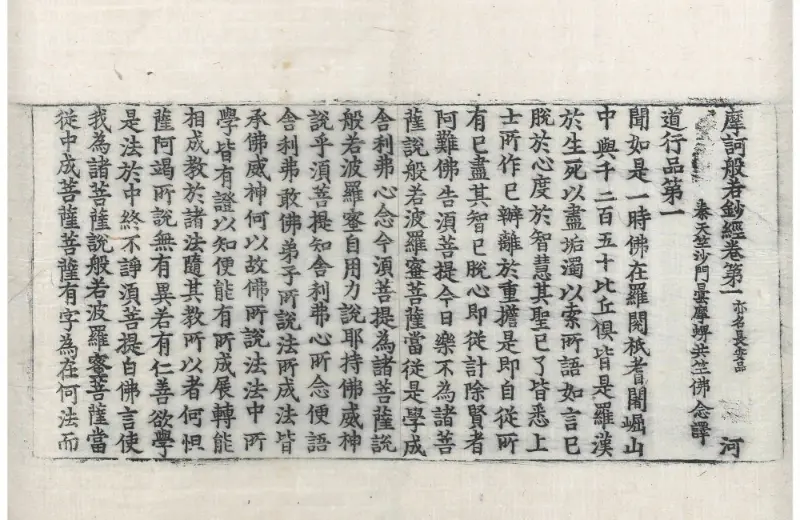 摩訶般若鈔經卷第一 亦名長安品 河
秦天竺沙門曇摩蜱共竺佛念譯
道行品第一
聞如是一時佛在羅閱祇耆闍崛山
中與千二百五十比丘俱皆是羅漢
於生死以盡垢濁以索所語如言已
脫於心度於智慧其聖已了皆悉上
士所作已辦離於重擔是即自從所
有已盡其智已脫心即從計除賢者
阿難佛告須菩提今日樂不為諸菩
薩說般若波羅蜜菩薩當從是學成
舍利弗心念今須菩提為諸菩薩說
般若波羅蜜自用力說耶持佛威神
說乎須菩提知舍利弗心所念便語
舍利弗敢佛弟子所說法所成法皆
承佛威神何以故佛所說法法中所
學皆有證以知便能有所成展轉能
相成教於諸法隨其教所以者何怛
薩阿竭所說無有異若有仁善欲學
是法於中終不諍須菩提白佛言使
我為諸菩薩說般若波羅蜜菩薩當
從中成菩薩菩薩有字為在何法而